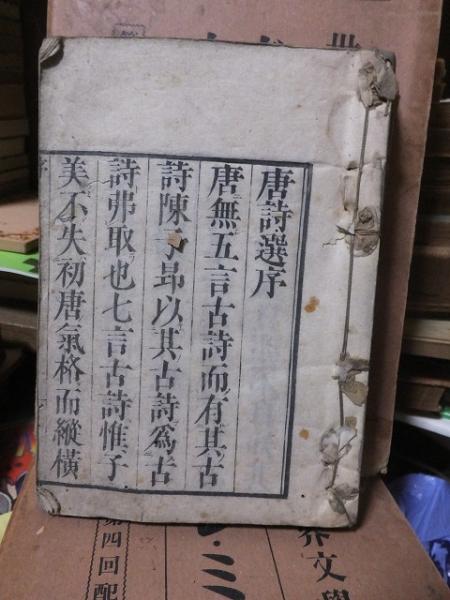 唐詩選序
唐無五言古詩而有其古
詩陳子昂以其古詩爲古
詩弗取也七言古詩惟子
美不失初唐氣格而縱橫
序
界文學
第四回配